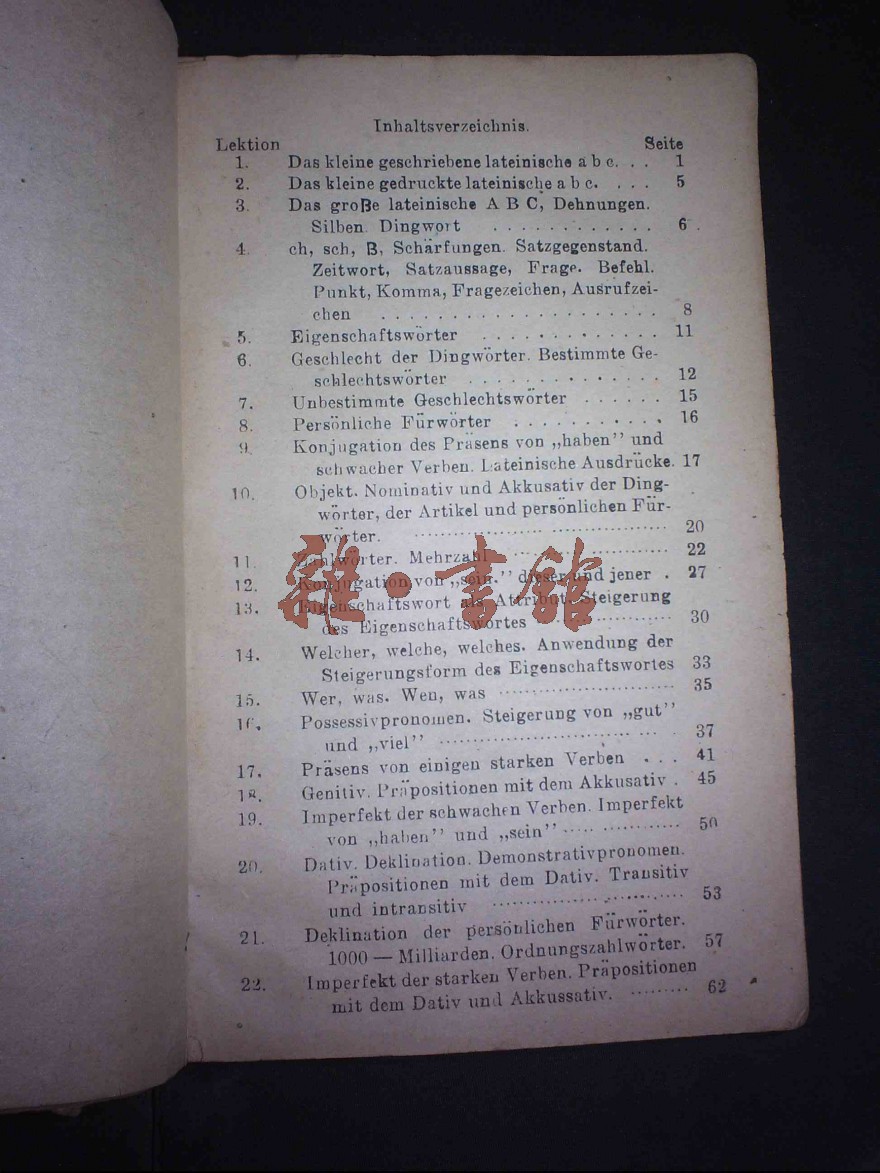 Inhaltsverzeichnis.
Lektion Seite
1. Das kleine geschriebene lateinische a b c. . . 1
2. Das kleine gedruckte lateinische a b c. . . . 5
3. Das große lateinische A B C, Dehnungen.
Silben. Dingwort . . . . . . . . . . . . 6
4. ch, sch, ß, Schärfungen. Satzgegenstand.
Zeitwort, Satzaussage, Frage. Befehl.
Punkt, Komma, Fragezeichen, Ausrufzei-
chen . . . . . . . . . . . . . . . . . . . . 8
5. Eigenschaftswörter . . . . . . . . . . . . . 11
6. Geschlecht der Dingwörter. Bestimmte Ge-
schlechtswörter . . . . . . . . . . . . . . 12
7. Unbestimmte Geschlechtswörter . . . . . . 15
8. Persönliche Fürwörter . . . . . . . . . . . 16
9. Konjugation des Präsens von „haben” und
schwacher Verben. Lateinische Ausdrücke. 17
10. Objekt. Nominativ und Akkusativ der Ding-
wörter, der Artikel und persönlichen Für-
wörter. .................................... 20
11. Zahlwörter. Mehrzahl ........................ 22
12. Konjugation von „sein.” dieser und jener . 27
13. Eigenschaftswort als Attribut. Steigerung
des Eigenschaftswortes .................. 30
14. Welcher, welche, welches. Anwendung der
Steigerungsform des Eigenschaftswortes 33
15. Wer, was. Wen, was .......................... 35
16. Possessivpronomen. Steigerung von „gut”
und „viel” ................................ 37
17. Präsens von einigen starken Verben . . . 41
18. Genitiv. Präpositionen mit dem Akkusativ . 45
19. Imperfekt der schwachen Verben. Imperfekt
von „haben” und „sein” .................. 50
20. Dativ. Deklination. Demonstrativpronomen.
Präpositionen mit dem Dativ. Transitiv
und intransitiv .......................... 53
21. Deklination der persönlichen Fürwörter.
1000 — Milliarden. Ordnungszahlwörter. 57
22. Imperfekt der starken Verben. Präpositionen
mit dem Dativ und Akkussativ. ......... 62
雜·書館